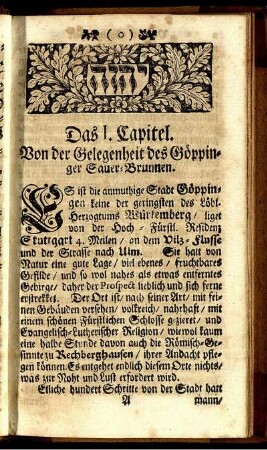 ( o )
יהוה
Das I. Capitel.
Von der Gelegenheit des Göppin-
ger Sauer-Brunnen.
ES ist die anmuthige Stadt Göppin-
gen keine der geringsten des Löbl.
Herzogtums Würtemberg / liget
von der Hoch-Fürstl. Residenz
Stuttgart 4. Meilen / an dem Vilz-Flusse
und der Strasse nach Ulm. Sie hat von
Natur eine gute Lage / viel ebenes / fruchtbares
Gefilde / und so wol nahes als etwas entferntes
Gebirge / daher der Prospect lieblich und sich ferne
erstrekket. Der Ort ist / nach seiner Art / mit fei-
nen Gebäuden versehen / volkreich / nahrhaft / mit
einem schönen Fürstlichen Schlosse gezieret / und
Evangelisch-Lutherischer Religion / wiewol kaum
eine halbe Stunde davon auch die Römisch-Ge-
sinnte zu Rechberghausen / ihrer Andacht pfle-
gen können. Es entgehet endlich diesem Orte nichts /
was zur Noht und Lust erfordert wird.
Etliche hundert Schritte von der Stadt hatt
A
mann /